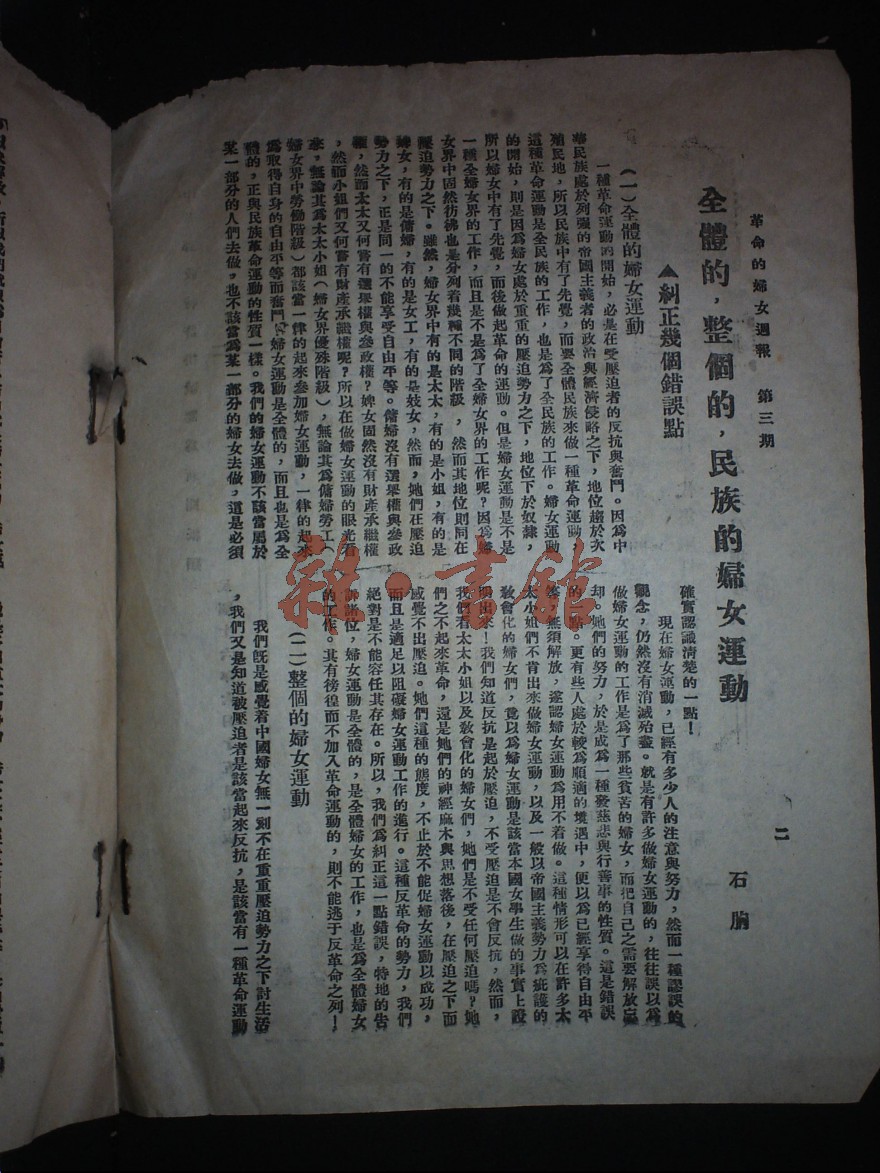 革命的婦女週報　第三期
二
全體的，整個的，民族的婦女運動
石
▲糾正幾個錯誤點
（一）全體的婦女運動
一種革命運動的開始，必是在受壓迫者的反抗與奮鬥。因爲中
華民族處於列强的帝國主義者的政治與經濟侵略之下，地位趨於次
殖民地，所以民族中有了先覺，而要全體民族來做一種革命運動，
這種革命運動是全民族的工作，也是爲了全民族的工作。婦女運動
的開始，則是因爲婦女處於重重的壓迫勢力之下，地位下於奴隸，
所以婦女中有了先覺，而後做起革命的運動。但是婦女運動是不是
一種全婦女界的工作，而且是不是爲了全婦女界的工作呢？因爲婦
女界中固然彷彿也是分列着幾種不同的階級，然而其地位則同在
壓迫勢力之下。雖然，婦女界中有的是太太，有的是小姐，有的是
婢女，有的是傭婦，有的是女工，有的是妓女，然而，她們在壓迫
勢力之下，正是同一的不能享受自由平等。傭婦沒有選舉權與參政
權，然而太太又何嘗有選舉權與參政權？婢女固然沒有財產承繼權
，然而小姐們又何嘗有財產承繼權呢？所以在做婦女運動的眼光看
來，無論其爲太太小姐（婦女界優殊階級），無論其爲傭婦勞工（
婦女界中勞働階級）都該當一律的起來參加婦女運動，一律的起來
爲取得自身的自由平等而奮鬥，婦女運動是全體的，而且也是爲全
體的，正與民族革命運動的性質一樣。我們的婦女運動不該當屬於
某一部分的人們去做，也不該當爲某一部分的婦女去做，這是必須
確實認識清楚的一點！
現在婦女運動，已經有多少人的注意與努力，然而一種謬誤的
觀念，仍然沒有消滅殆盡。就是有許多做婦女運動的，往往誤以爲
做婦女運動的工作是爲了那些貧苦的婦女，而把自己之需要解放忘
却，她們的努力，於是成爲一種發慈悲與行善事的性質。這是錯誤
的一點。更有些人處於較爲順適的境遇中，便以爲已經享得自由平
等，無須解放，遂認婦女運動爲用不着做。這種情形可以在許多太
太小姐們不肯出來做婦女運動，以及一般以帝國主義勢力爲庇護的
敎會化的婦女們，竟以爲婦女運動是該當本國女學生做的事實上證
明出來！我們知道反抗是起於壓迫，不受壓迫是不會反抗，然而，
我們看太太小姐以及敎會化的婦女們，她們是不受任何壓迫嗎？她
們之不起來革命，還是她們的神經麻木與思想落後，在壓迫之下而
感覺不出壓迫。她們這種的態度，不止於不能促婦女運動以成功，
而且是適足以阻礙婦女運動工作的進行。這種反革命的勢力，我們
絕對是不能容任其存在。所以，我們爲糾正這一點錯誤，特地的告
訴諸位，婦女運動是全體的，是全體婦女的工作，也是爲全體婦女
的工作。其有徬徨而不加入革命運動的，則不能逃于反革命之列！
（二）整個的婦女運動
我們旣是感覺着中國婦女無一刻不在重重壓迫勢力之下討生活
，我們又是知道被壓迫者是該當起來反抗，是該當有一種革命運動
雜·書館